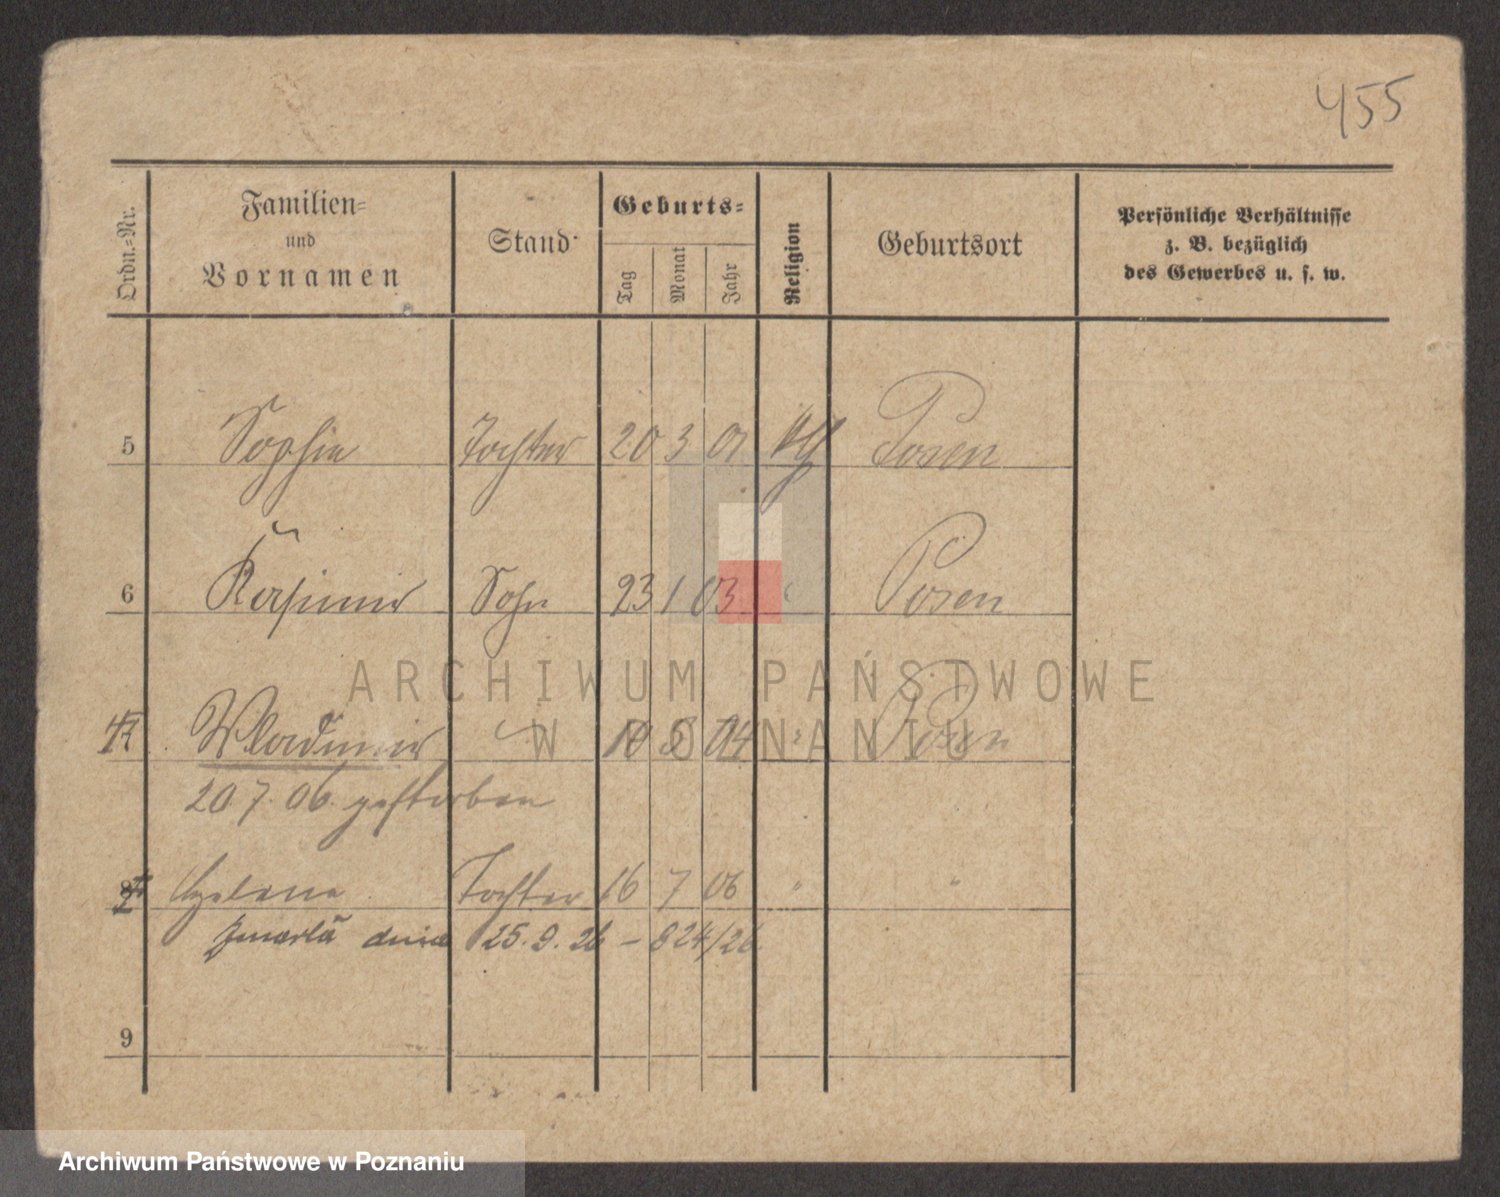 455
Ordn.-Nr.
Familien-
und
Vornamen
Stand
Geburts-
Tag
Monat
Jahr
Religion
Geburtsort
Persönliche Verhältnisse
z. B. bezüglich
des Gewerbes u. s. w.
5 Sophie Tochter 20 3 01 Posen
6 Kasimir Sohn 23 1 03 " Posen
Wladimir 04 " Posen
20.7.06. gestorben
Helene Tochter 16 7 06 " "
Zmarła dnia 25.9.26 – 824/26
9
ARCHIWUM PAŃSTWOWE
W POZNANIU
Archiwum Państwowe w Poznaniu